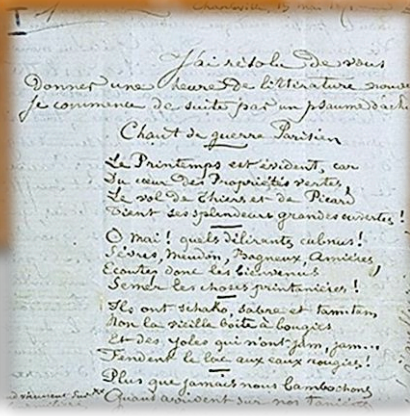 I
Charleville, 15 mai
J'ai résolu de vous
Donner une heure de littérature nouve
Je commence de suite par un psaume d'ac
Chant de guerre Parisien
Le Printemps est évident, car
Du cœur des Propriétés vertes,
Le vol de Thiers et de Picard
Tient ses splendeurs grandes ouvertes !
O mai ! quels délirants culnus !
Sèvres, Meudon, Bagneux, Asnières,
Ecoutez donc les bienvenus
Semer les choses printanières !
Ils ont schako, sabre et tamtam
Non la vieille boîte à bougies
Et des yoles qui n'ont jam, jam...
Fendent le lac aux eaux rougies !
Plus que jamais nous bambochons
Quand arrivent sur nos tanières